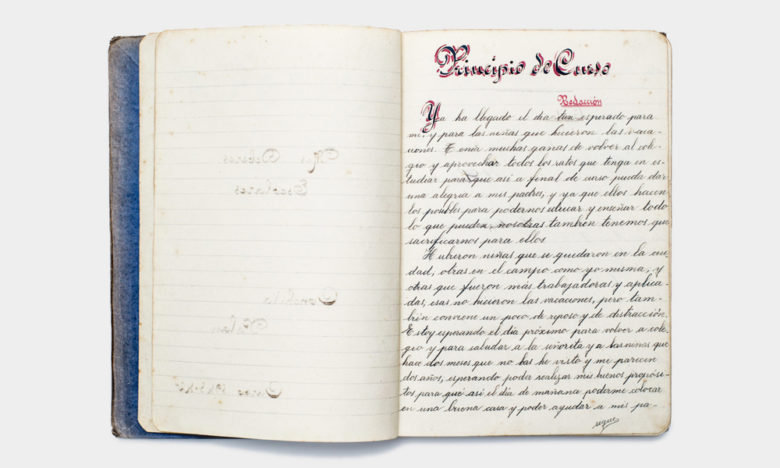 Mis Deberes
Escolares
Conchita
Curso
Principio de Curso
Redacción
Ya ha llegado el día tan esperado para
mí y para las niñas que hicieron las vaca-
ciones. Tenía muchas ganas de volver al cole-
gio y aprovechar todos los ratos que tenga en es-
tudiar para que así a final de curso pueda dar
una alegria a mis padres, y ya que ellos hacen
los posibles para podernos educar y enseñar todo
lo que pueden, nosotras también tenemos que
sacrificarnos para ellos
Hubieron niñas que se quedaron en la ciu-
dad, otras en el campo como yo misma, y
otras que fueron más trabajadoras y aplica-
das, esas no hicieron las vacaciones, pero tam-
bién conviene un poco de reposo y de distracción.
Estoy esperando el día próximo para volver a cole-
gio y para saludar a la señorita y a las niñas que
hace dos meses que no las he visto y me parecen
dos años, esperando poder realizar mis buenos propósi-
tos para que así el día de mañana poderme colocar
en una buena casa y poder ayudar a mis pa-
sigue